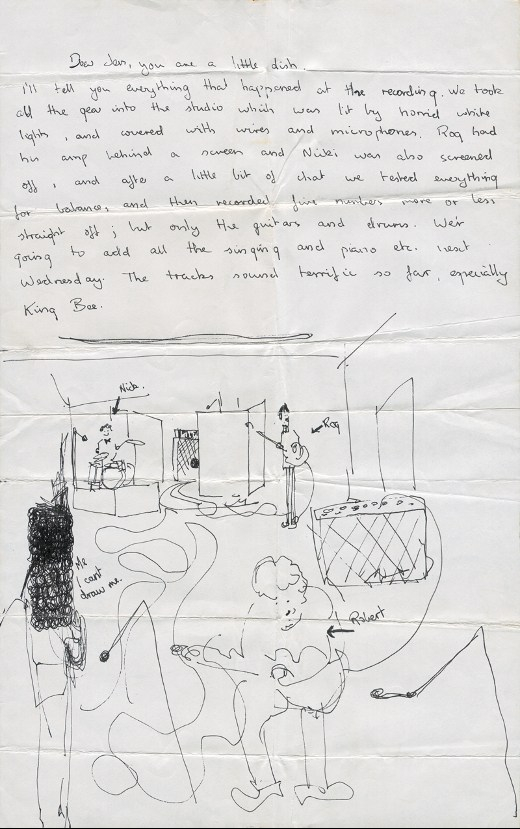 Dear Jen, you are a little dish.
I'll tell you everything that happened at the recording. We took
all the gear into the studio which was lit by horrid white
lights, and covered with wires and microphones. Rog had
his amp behind a screen and Nicki was also screened
off, and after a little bit of chat we tested everything
for balance, and then recorded five numbers more or less
straight off; but only the guitars and drums. We're
going to add all the singing and piano etc. next
Wednesday. The tracks sound terrific so far, especially
King Bee.
Nick.
Rog
Me
I can't
draw me.
Robert